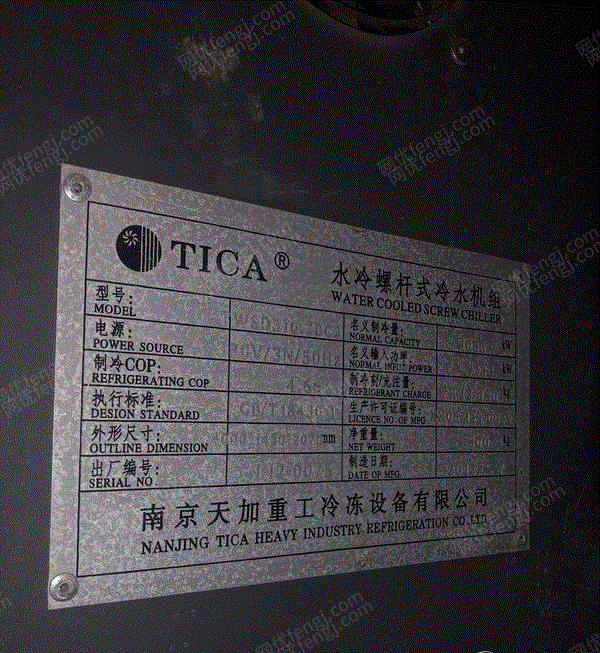 TICA®
水冷螺杆式冷水机组
WATER COOLED SCREW CHILLER
型号:
MODEL
名义制冷量:
NORMAL CAPACITY
kW
电源:
POWER SOURCE
0V/3N/50Hz
名义输入功率:
NORMAL INPUT POWER
kW
制冷COP:
REFRIGERATING COP
4.66
制冷剂/充注量:
REFRIGERANT CHARGE
kg
执行标准:
DESIGN STANDARD
GB/T18430.1
生产许可证编号:
LICENCE NO. OF MFG
外形尺寸:
OUTLINE DIMENSION
mm
净重量:
NET WEIGHT
kg
出厂编号:
SERIAL NO
制造日期:
DATE OF MFG
南京天加重工冷冻设备有限公司
NANJING TICA HEAVY INDUSTRY REFRIGERATION CO.LTD
网优fengj.com